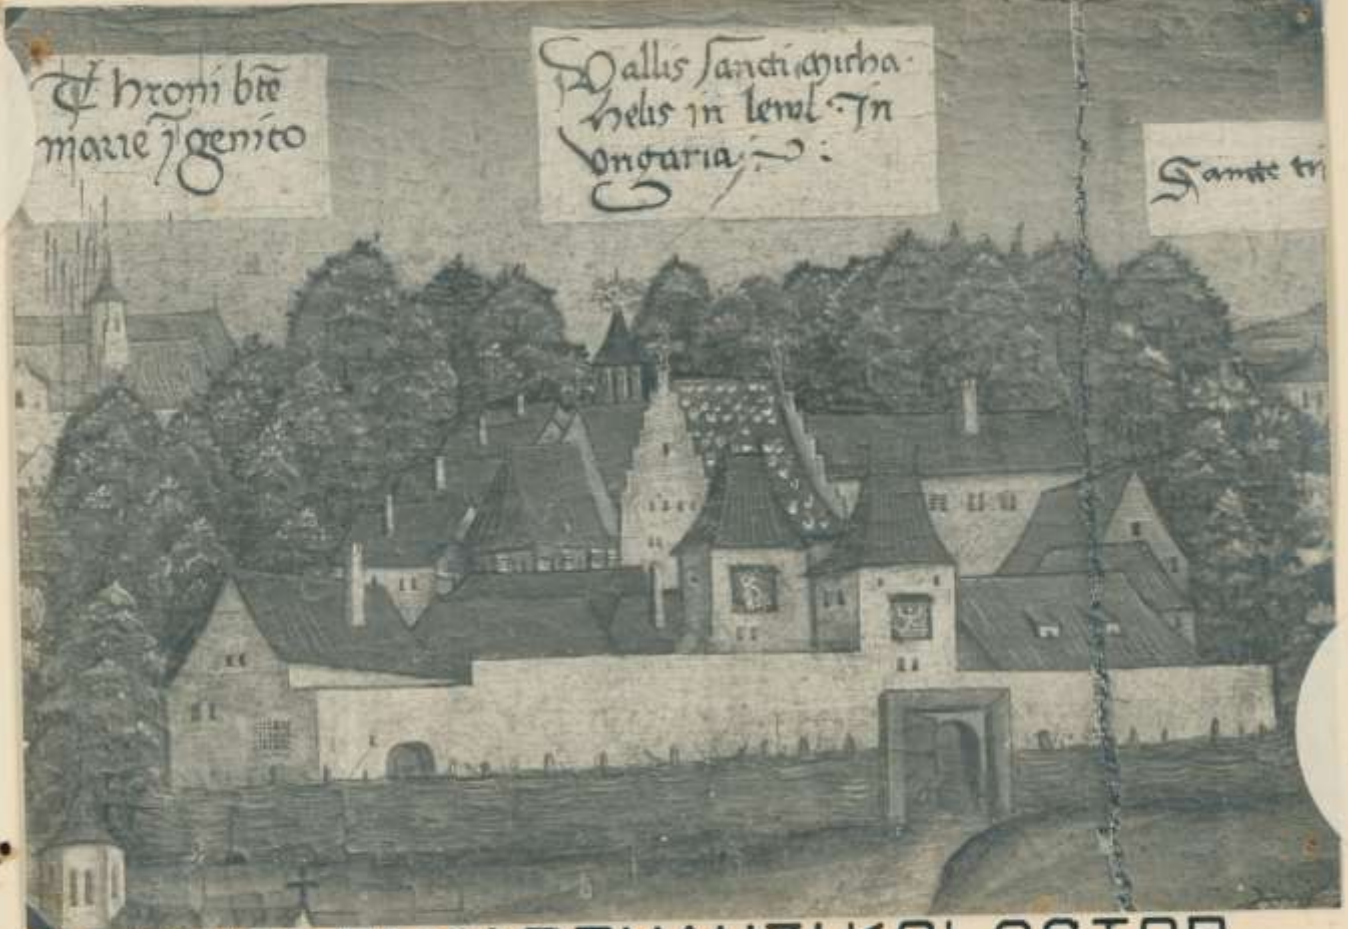 Throni bte
marie j genito
Vallis sancti micha
helis in lewl · In
vngaria
Sancte tri